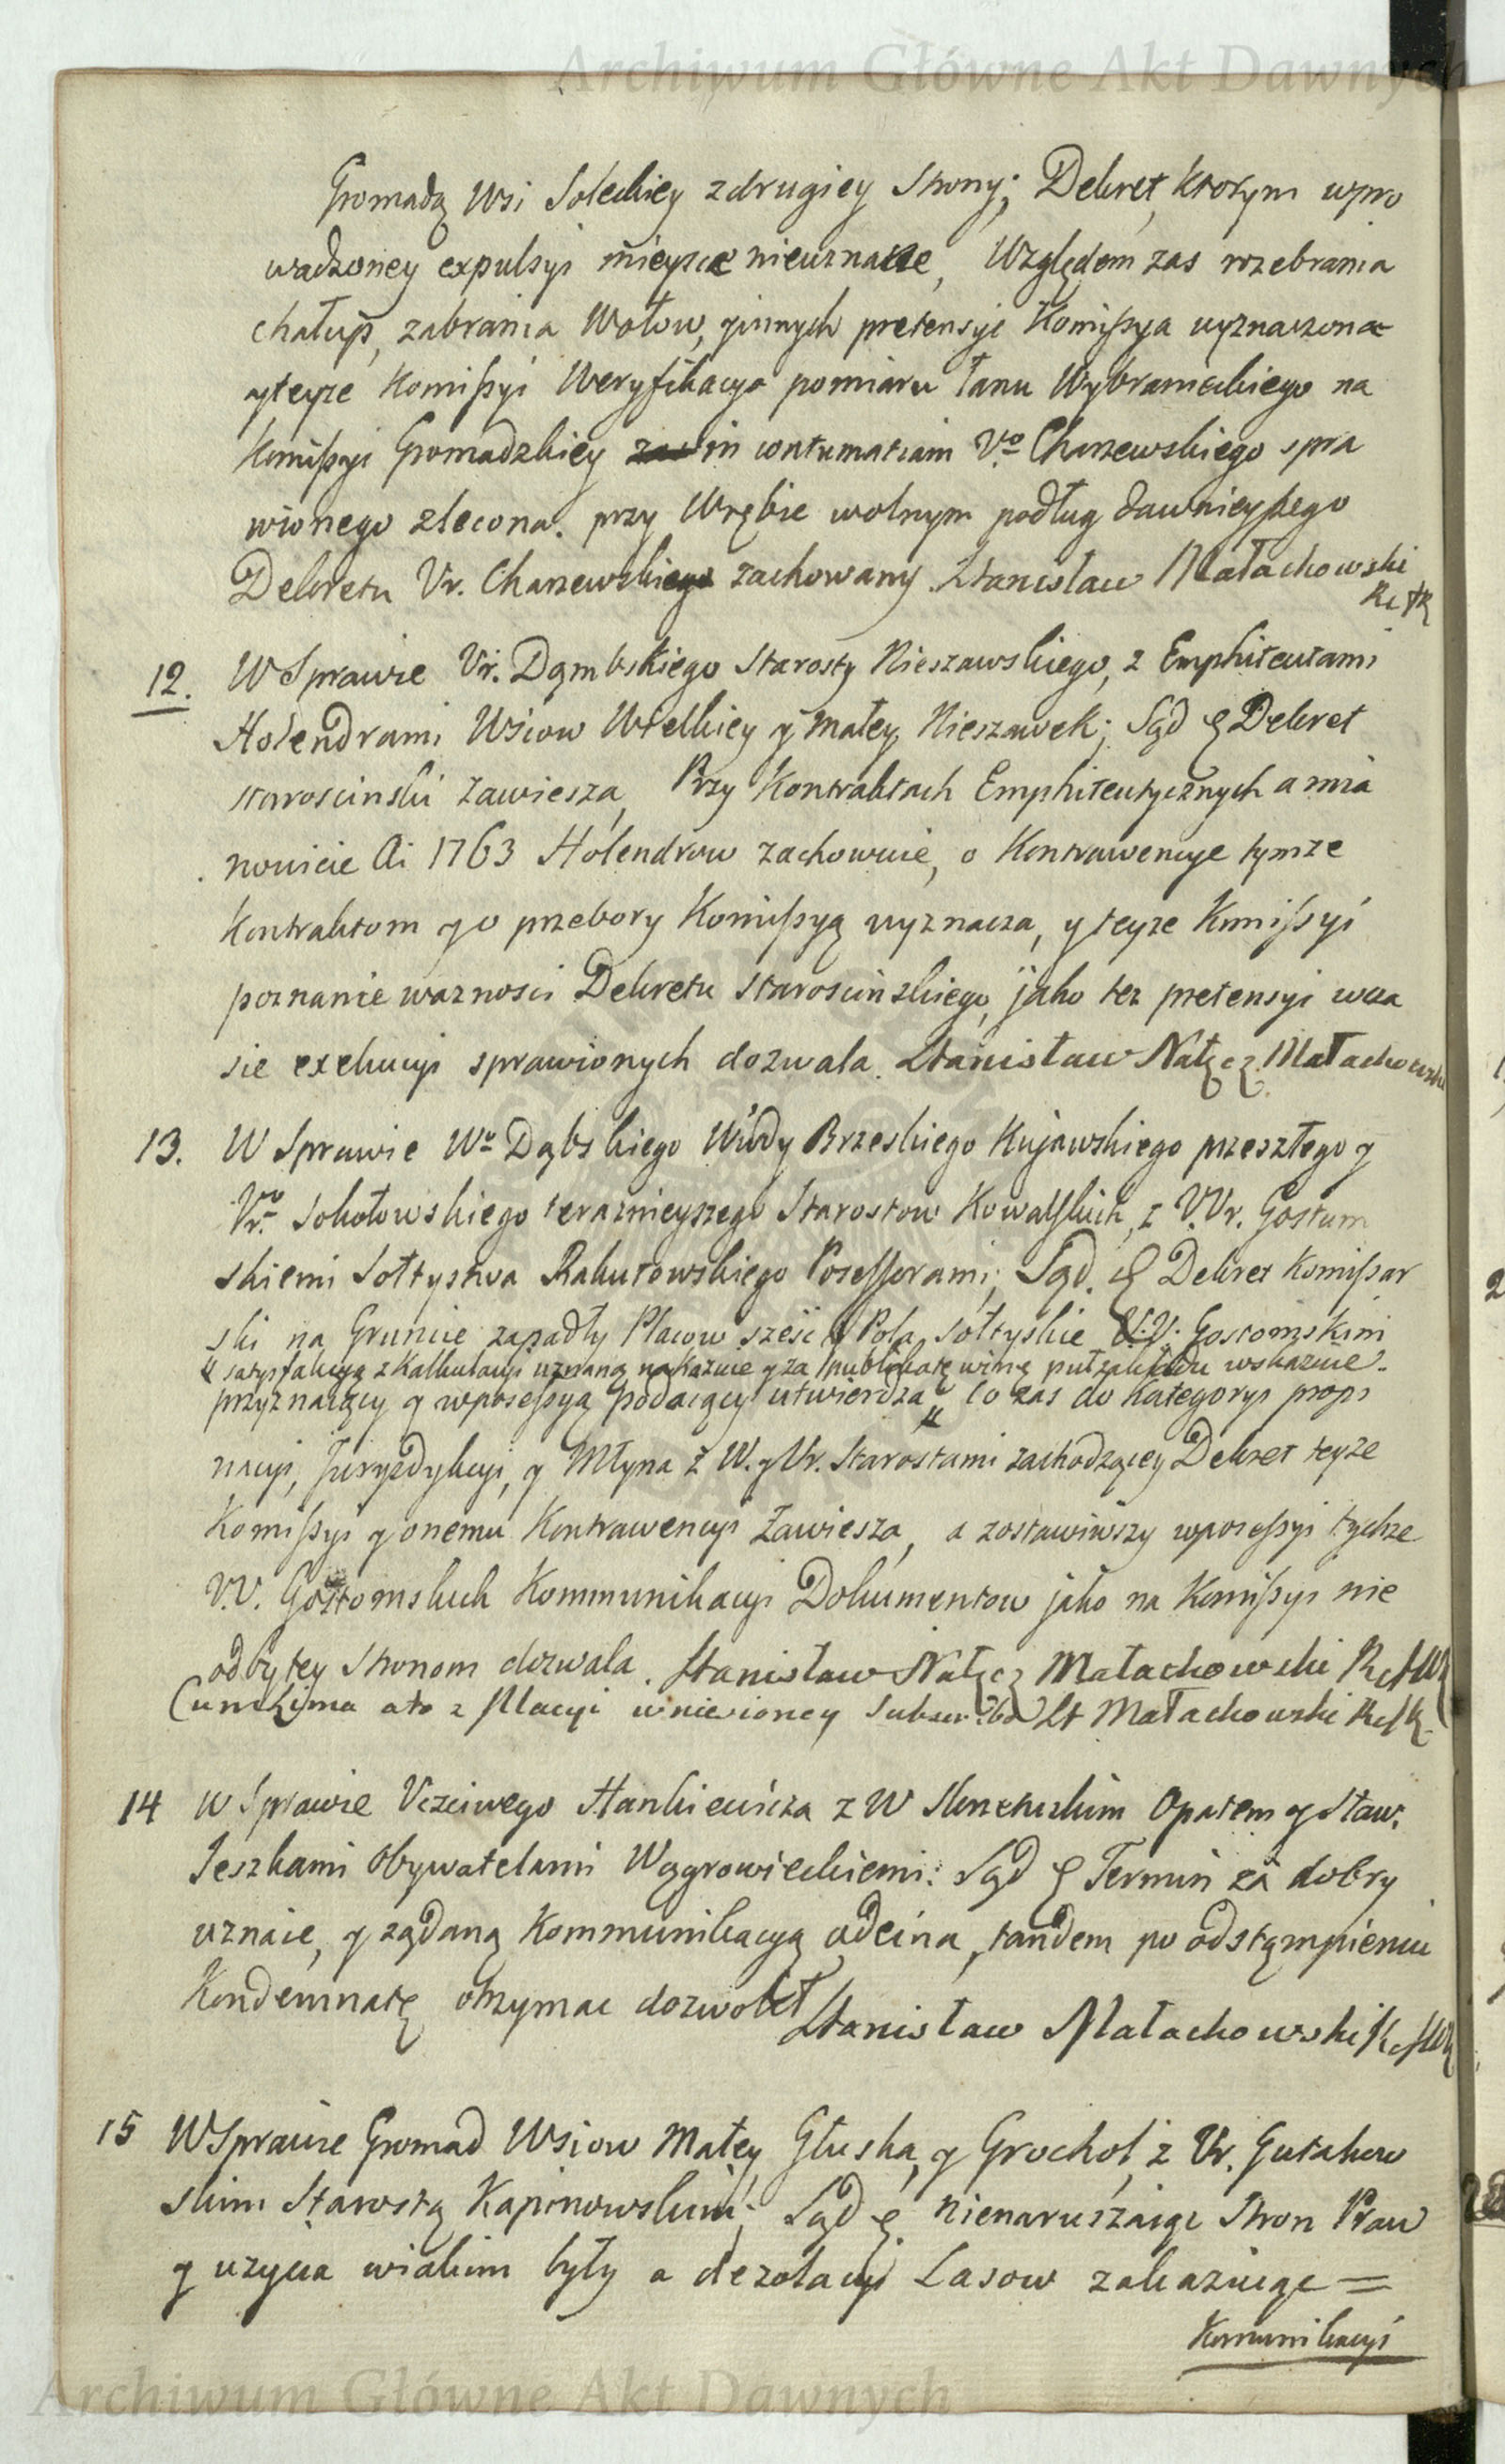 Archiwum Główne Akt Dawnych
Gromadą Wsi Soleckiey z drugiey Strony; Dekret, ktorym wpro
wadzoney expulsyi mieysce nieuznane, Względem zas rozebrania
chałup, zabrania Wołow, y innych pretensyi Komißya wyznaczona
y teyże Komißyi Weryfikacya pomiaru łanu Wybranieckiego na
Komißyi Gromadzkiey in contumatiam Vo Charzewskiego spra
wionego zlecona. przy Wrębie wolnym podług dawnieyßego
Dekretu Vr. Charzewskiego zachowany. Stanisław Małachowski
12. W Sprawie Vr. Dąmbskiego Starosty Nieszawskiego, z Emphiteutami
Holendrami Wsiow Wielkiey y Małey Nieszawek; Sąd Dekret
starościnski zawiesza, Przy Kontraktach Emphiteutycznych a mia
nowicie Ai 1763 Holendrow zachowuie, o Kontrawencye tymże
Kontraktom y o przebory Komißyą wyznacza, y teyze Komißyi
poznanie wazności Dekretu Starościnskiego, jako tez pretensyi wcza
sie exekucyi sprawionych dozwala. Stanisław Nałęcz Małachowski
13. W Sprawie Wo Dąbskiego Wdy Brzeskiego Kujawskiego przeszłego y
Vro Sokołowskiego teraznieyszego Starostow Kowalskich, z V.Vr. Gostum
skiemi Sołtystwa Rakutowskiego Poseßorami; Sąd. Dekret Komißar
ski na Gruncie zapadły Placow sześć y Pola Sołtyskie V.V. Gostomskim
satysfakcyą z Kalkulacyi uznaną nakazuie y za publikatę winę pułzakładu wskazuie.
przyznaiący y w posseßyą podaiący utwierdza, co zas do kategoryi propi
nacyi, Juryzdykcyi, y Młyna z W. y Vr. Starostami zachodzącey Dekret teyże
Komißyi y onemu Kontrawencyi zawiesza, a zostawiwszy w poseßyi tychze
V.V. Gostomskich Kommunikacyi Dokumentow jako na Komißyi nie
odbytey Stronom dozwala. Stanisław Nałęcz Małachowski
ato z wniesioney St Małachowski
14 W Sprawie Uczciwego Stankiewicza z W Opatem y Sław.
Jeszkami Obywatelami Wągrowieckiemi: Sąd Termin za dobry
uznaie, y ządaną Kommunikacyą odcina, tandem po odstąmpieniu
Kondemnatę otrzymac dozwolił
Stanisław Małachowski
15 W Sprawie Gromad Wsiow Małey Głuska, y Grochol, z Vr. Gutakow
skim Starostą Kapinowskim; Sąd nienaruszaiąc Stron Praw
y uzycia wiakim były a dezolacyi Lasow zakazuiąc =
Komunikacyi
Archiwum Główne Akt Dawnych